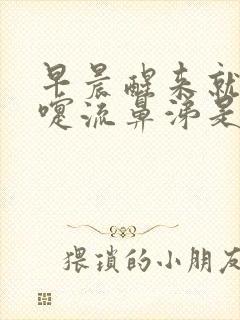 早晨醒来就
嚏流鼻涕是
猥琐的小朋友